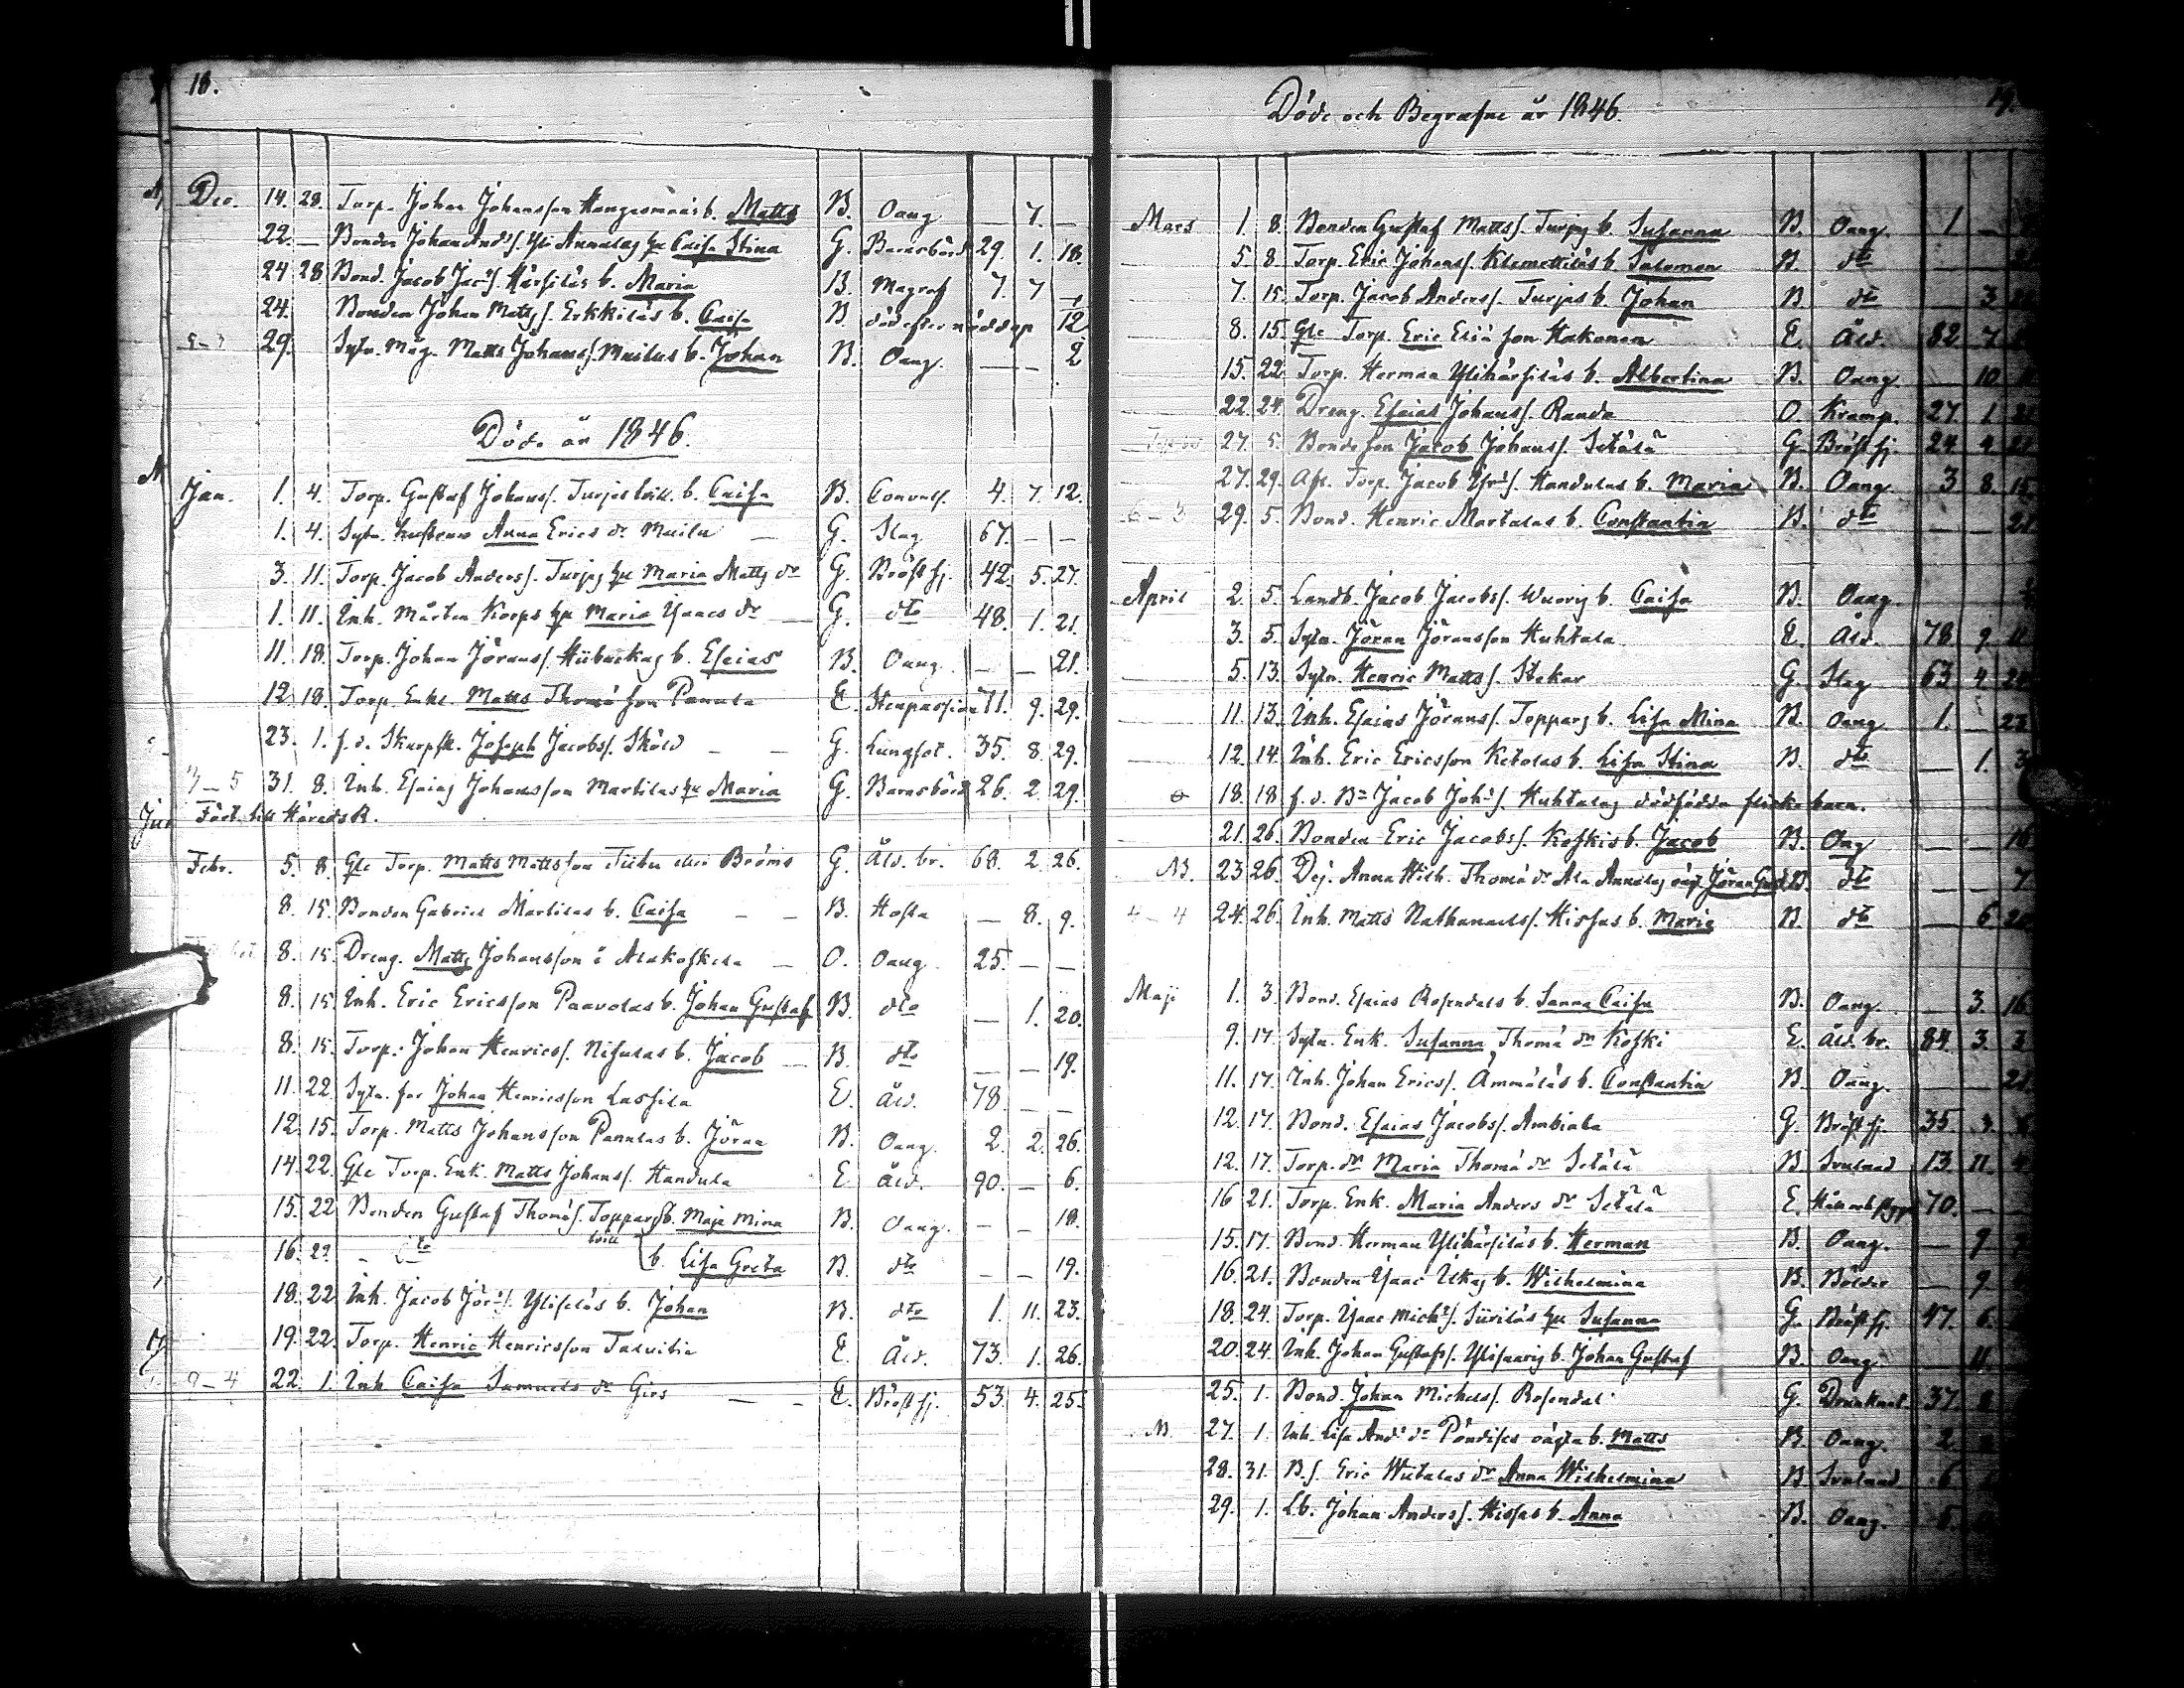 18.
Dec. 14. 28. Torp. Johan Johansson Kangasmaas b. Matts B. Oang — 7. —
22. — Bonden Johan And:s/. Yli Annalas hu Caisa Stina G. Barnsbörd 29. 1. 18.
24 28 Bond. Jacob Jac:s/. Härsiläs b. Maria B. Magref 7. 7
24. Bonden Johan Matts/. Erkkiläs b. Caisa B. död efter nöddop 1/12
5–3 29. Sytn. Måg. Matts Johans/. Muilus b. Johan B. Oang. — — 2
Döde år 1846.
Jan. 1. 4. Torp. Gustaf Johans/. Turjas tvill. b. Caisa B. Convuls. 4. 7. 12.
1. 4. Sytn. hustru Anna Erics dr Muilu — G. Slag 67. — —
3. 11. Torp. Jacob Anders/. Turjas hu Maria Matts dr G. Bröstsj. 42. 5. 27.
1. 11. Inh. Mårten Korps hu Maria Isaacs dr — G. dto 48. 1. 21.
11. 18. Torp. Johan Jörans/. b. Esaias B. Oang. — — 21.
12. 18. Torp. Enkl. Matts Thomæson Pannula E. Stenpassion 71. 9. 29.
23. 1. f. d. Skarpsk. Joseph Jacobs/. Sköld — — G. Lungsot. 35. 8. 29.
3–5 31. 8. Inh. Esaias Johansson Martilas hu Maria G. Barnsbörd 26. 2. 29.
Förd. till Härads R.
Febr. 5. 8. Gle Torp. Matts Mattsson eller Bröms G. Åld. br. 68. 2. 26.
8. 15. Bonden Gabriel Martilas b. Caisa — — B. Hosta — 8. 9.
8. 15. Dreng. Matts Johansson i Alakoskela — O. Oang 25. — —
8. 15. Inh. Eric Ericsson Paavolas b. Johan Gustaf B. dto — 1. 20.
8. 15. Torp. Johan Henrics/. Nisulas b. Jacob — B. dto — — 19.
11. 22. Sytn. far Johan Henricsson Lassila E. Åld. 78. — —
12. 15. Torp. Matts Johansson Pannulas b. Jöran B. Oang. 2. 2. 26.
14. 22. Gle Torp. Enk. Matts Johans/. Handula E. Åld. 90. — 6.
15. 22 Bonden Gustaf Thomæs/. Toppars b. Maja Mina B. Oang. — — 18.
16. 22 — dto tvill b. Lisa Greta B. dto — — 19.
18. 22 Inh. Jacob Jör:s/. Yliseläs b. Johan B. dto 1. 11. 23.
19. 22. Torp. Henric Henricsson Talvitie E. Åld. 73. 1. 26.
9–4 22. 1. Inh. Caisa Samuels dr Girs — — E. Bröstsj. 53. 4. 25.
Döde och Begrafne år 1846.
19.
Mars 1. 8. Bonden Gustaf Matts/. Turjas b. Susanna B. Oang. 1 —
5. 8. Torp. Eric Johans/. Klemettiläs b. Salomon B. dto
7. 15. Torp. Jacob Anders/. Turjas b. Johan B. dto 3
8. 15. Gle Torp. Eric Eliæson Hakonen E. Åld. 82 7
15. 22. Torp. Herman Ylihärsiläs b. Albertina B. Oang. 10
22. 24. Dreng. Esaias Johans/. Randa O. Kramp. 27. 1.
27. 5. Bondeson Jacob Johans/. Setälä G. Bröstsj. 24 4
27. 29. Afl. Torp. Jacob Isr:s/. Handulas b. Maria B. Oang 3 8. 15.
6–3 29. 5. Bond. Henric Martalas b. Constantin B. dto — 21
April 2. 5. Landb. Jacob Jacobs/. Wuoris b. Caisa B. Oang.
3. 5. Sytn. Jöran Jöransson Huhtala E. Åld. 78. 9. 11
5. 13. Sytn. Henric Matts/. Stekar G. Slag 63 4
11. 13. Inh. Esaias Jörans/. Toppars b. Lisa Mina B. Oang 1. — 23
12. 14. Inh. Eric Ericsson Ketolas b. Lisa Stina B. dto — 1. 3
18. 18 f. d. Bn Jacob Joh:s/. Huhtalas dödfödda flickebarn.
21. 26. Bonden Eric Jacobs/. Koskis b. Jacob B. Oang — — 16
23 26. Pig. Anna Wilh. Thomæ dr Ala Annalas oägt. Jöran Gust. B. dto — — 7
4–4 24. 26. Inh. Matts Nathanaels/. Hissas b. Maria B. dto — 6.
Maji 1. 3. Bond. Esaias Rosendals b. Sanna Caisa B. Oang. — 3. 16
9. 17. Sytn. Enk. Susanna Thomæ dr Koski E. Åld. br. 84. 3. 3
11. 17. Inh. Johan Erics/. Ämmäläs b. Constantin B. Oang. — 21
12. 17. Bond. Esaias Jacobs/. Ambiala G. Bröstsj. 35 3.
12. 17. Torp. dr Maria Thomæ dr Setälä B. Svulnad 13. 11. 4
16 21. Torp. Enk. Maria Anders dr Setälä E. 70. — —
15. 17. Bond. Herman Ylihärsiläs b. Herman B. Oang. — 9
16. 21. Bonden Isaac Ukas b. Wilhelmina B. Bölder — 9
18. 24. Torp. Isaac Mich:s/. Siiriläs hu Susanna G. Bröstsj. 47. 6.
20. 24. Inh. Johan Gustafs/. Ylisaaris b. Johan Gustaf B. Oang 11.
25. 1. Bond. Johan Michels/. Rosendal G. Drunknat 37. 8
27. 1. Inh. Lisa And:s dr Pöndises oägta b. Matts B. Oang. 2.
28. 31. B.s. Eric Wiitalas dr Anna Wilhelmina B. Svulnad 6
29. 1. Lb. Johan Anders/. Hissas b. Anna B. Oang. 5.